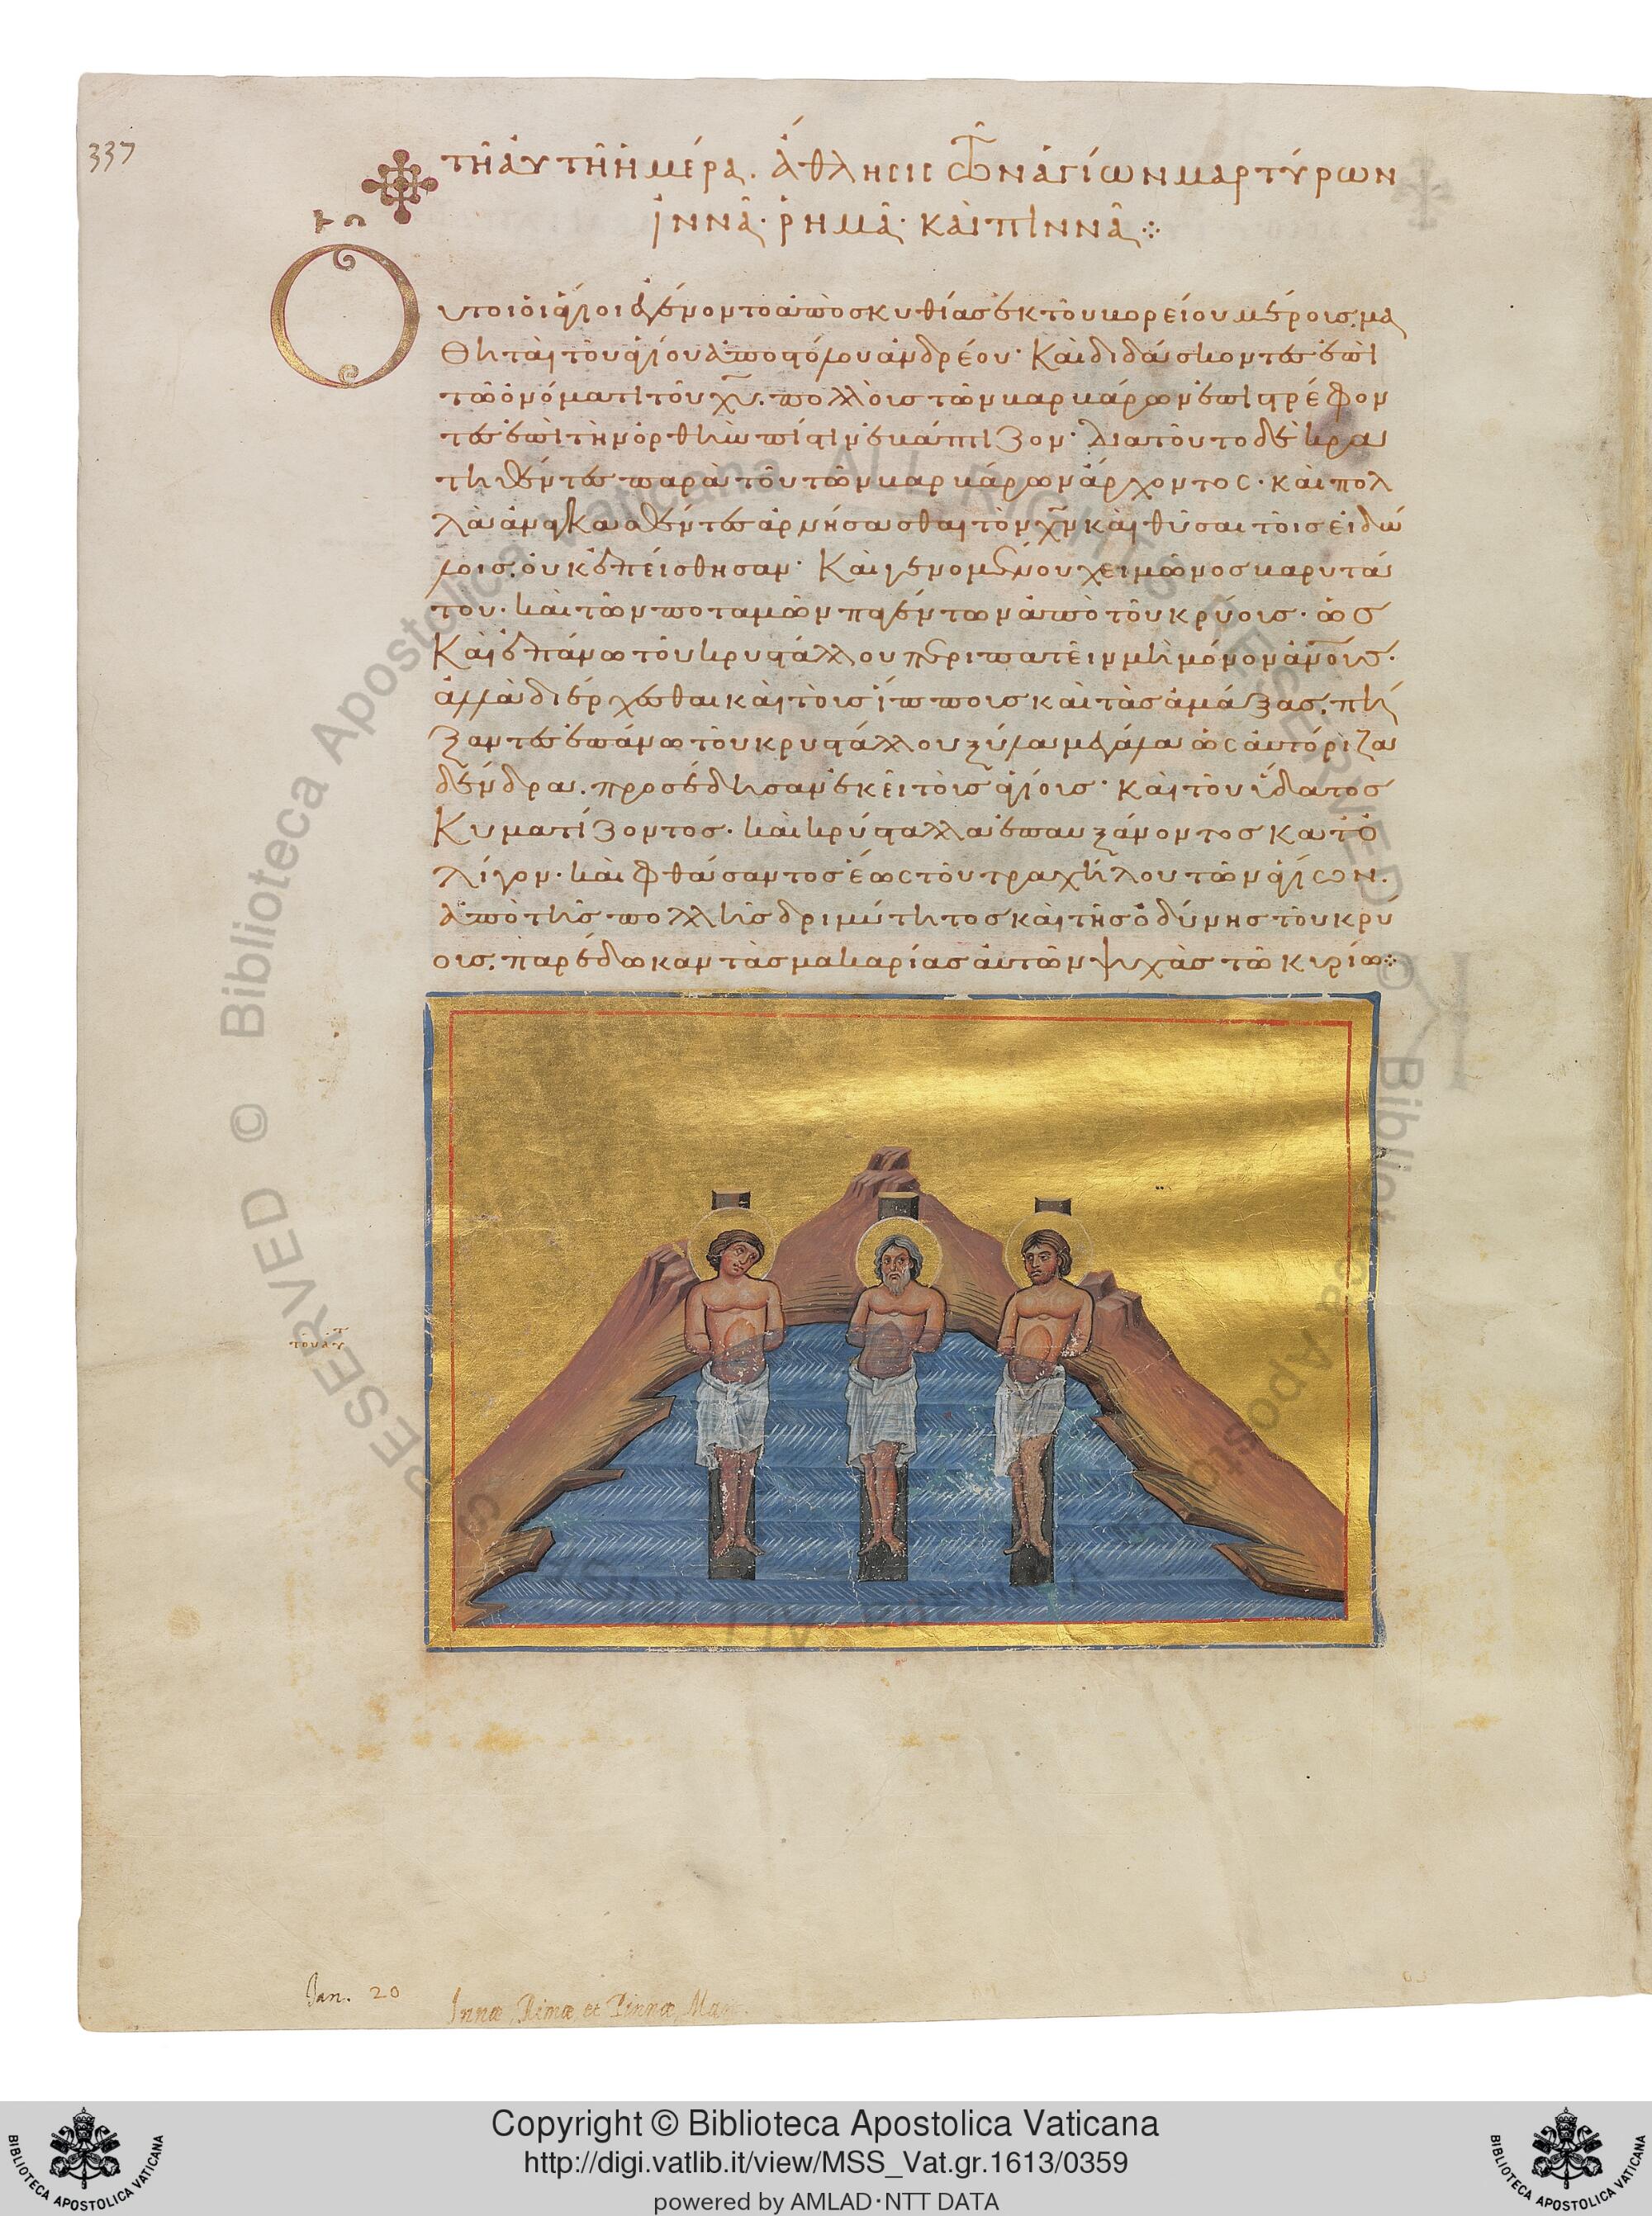 337
τῇ αὐτῇ ἡμέρᾳ. ἄθλησις τῶν ἁγίων μαρτύρων
ἰννᾶ· ῥημᾶ· καὶ πιννᾶ
Οὗτοι οἱ ἅγιοι ἐγένοντο ἀπὸ σκυθίας ἐκ τοῦ βορείου μέρους. μα
θηταὶ τοῦ ἁγίου ἀποστόλου ἀνδρέου· Καὶ διδάσκοντες ἐπὶ
τῶ ὀνόματι τοῦ χυ. πολλοὺς τῶν βαρβάρων ἐπιστρέφον
τες ἐπὶ τὴν ὀρθὴν πίστιν ἐβάπτιζον· Διὰ τοῦτο δὲ κρα
τηθέντες παρὰ τοῦ τῶν βαρβάρων ἄρχοντος· καὶ πολ
λὰ ἀναγκασθέντες ἀρνήσασθαι τὸν χν καὶ θῦσαι τοῖς εἰδώ
λοις. οὐκ ἐπείσθησαν· Καὶ γενομένου χειμῶνος βαρυτά
του· καὶ τῶν ποταμῶν παγέντων ἀπὸ τοῦ κρύους· ὡς
Καὶ ἐπάνω τοῦ κρυστάλλου περιπατεῖν μὴ μόνον ἀνους·
ἀλλὰ διέρχεσθαι καὶ τοὺς ἵππους καὶ τὰς ἁμάξας. πή
ξαντες ἐπάνω τοῦ κρυστάλλου ξύλα μεγάλα ὡς αὐτόριζα
δένδρα. προσέδησαν ἐκεῖ τοὺς ἁγίους· Καὶ τοῦ ὕδατος
Κυματίζοντος· καὶ κρύσταλλα ἐπαυξάνοντος κατ ὀ
λίγον· καὶ φθάσαντος ἕως τοῦ τραχήλου τῶν ἁγίων.
ἀπὸ τῆς πολλῆς δριμύτητος καὶ τῆς ὀδύνης τοῦ κρύ
ους. παρέδωκαν τὰς μακαρίας αὐτῶν ψυχὰς τῶ κυρίω
Jan. 20 Innæ, Rimæ et Pinnæ, Mar
Copyright © Biblioteca Apostolica Vaticana
http://digi.vatlib.it/view/MSS_Vat.gr.1613/0359
powered by AMLAD·NTT DATA
BIBLIOTECA APOSTOLICA VATICANA
BIBLIOTECA APOSTOLICA VATICANA
© Biblioteca Apostolica Vaticana ALL RIGHTS RESERVED © Biblioteca Apostolica Vaticana ALL RIGHTS RESERVED